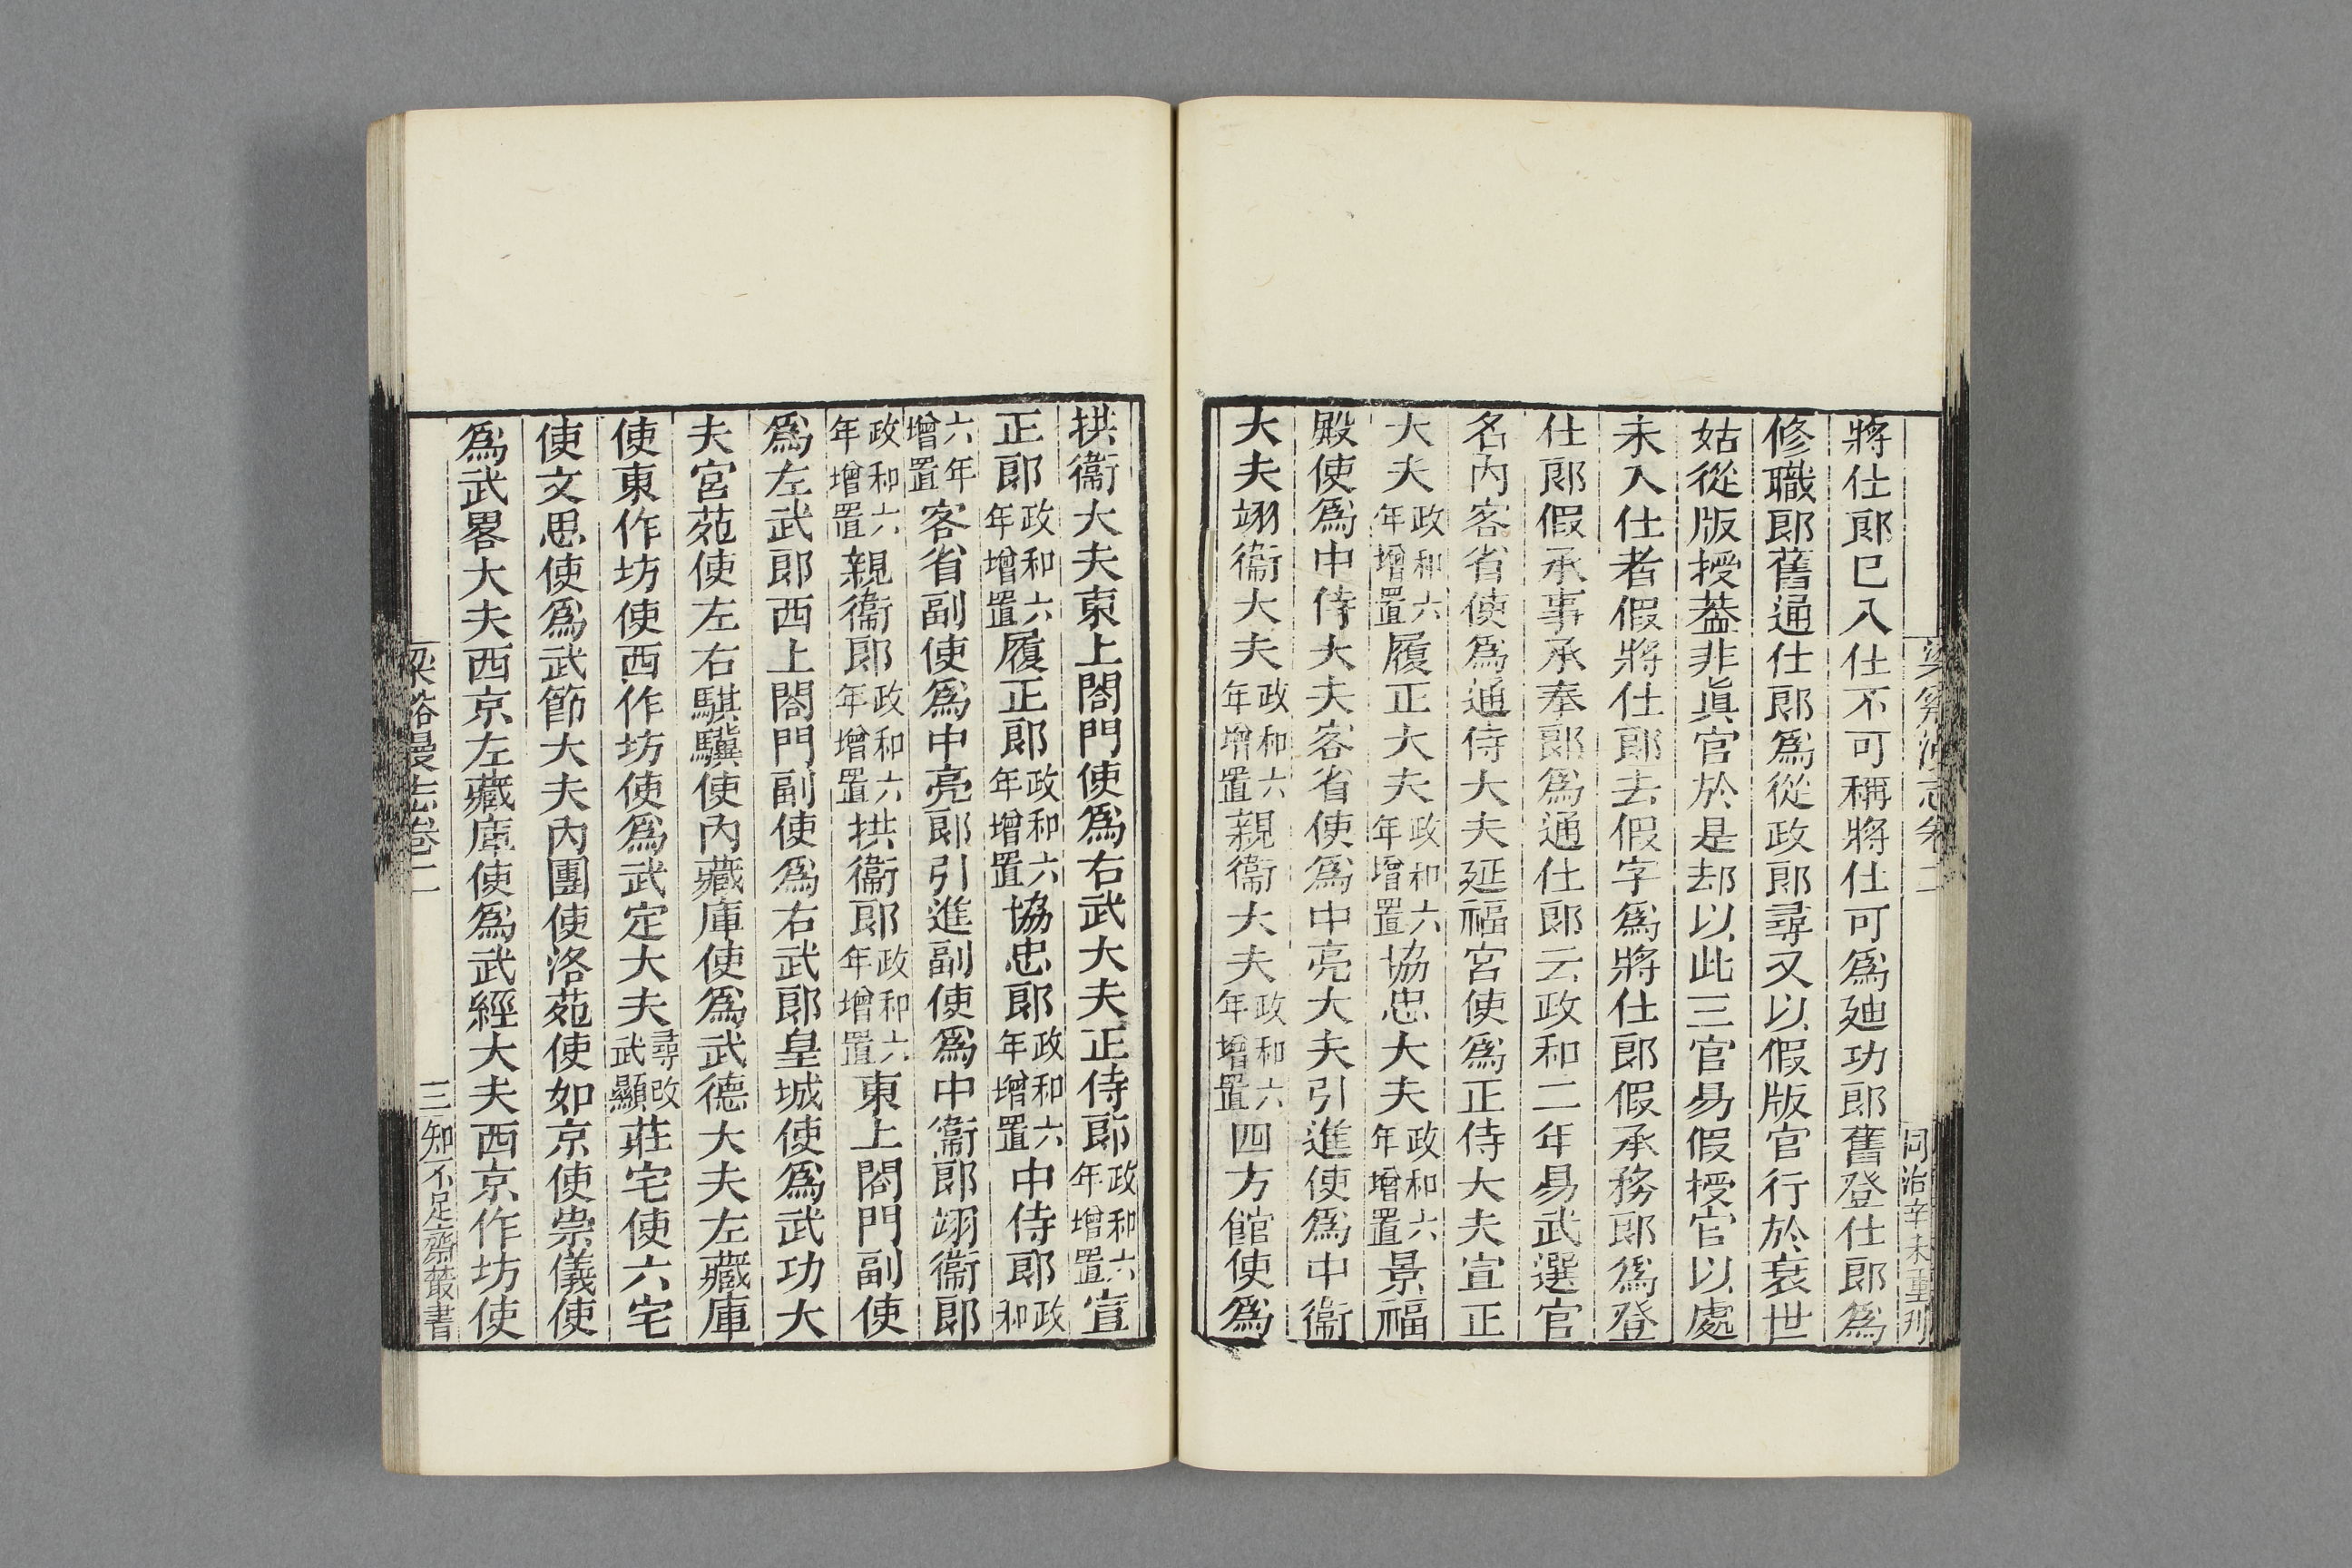 梁谿漫志卷二
同治辛未重刊
將仕郎已入仕不可稱將仕可爲廸功郎舊登仕郎爲
修職郎舊通仕郎爲從政郎尋又以假版官行於衰世
姑從版授葢非眞官於是却以此三官易假授官以處
未入仕者假將仕郎去假字爲將仕郎假承務郎爲登
仕郎假承事承奉郎爲通仕郎云政和二年易武選官
名內客省使爲通侍大夫延福宮使爲正侍大夫宣正
大夫政和六年增置履正大夫政和六年增置協忠大夫政和六年增置景福
殿使爲中侍大夫客省使爲中亮大夫引進使爲中衞
大夫翊衞大夫政和六年增置親衞大夫政和六年增置四方館使爲
拱衞大夫東上閤門使爲右武大夫正侍郎政和六年增置宣
正郎政和六年增置履正郎政和六年增置協忠郎政和六年增置中侍郎政和
六年增置客省副使爲中亮郎引進副使爲中衞郎翊衞郎
政和六年增置親衞郎政和六年增置拱衞郎政和六年增置東上閤門副使
爲左武郎西上閤門副使爲右武郎皇城使爲武功大
夫宮苑使左右騏驥使內藏庫使爲武德大夫左藏庫
使東作坊使西作坊使爲武定大夫尋改武顯莊宅使六宅
使文思使爲武節大夫內園使洛苑使如京使崇儀使
爲武畧大夫西京左藏庫使爲武經大夫西京作坊使
梁谿漫志卷二
三
知不足齋叢書